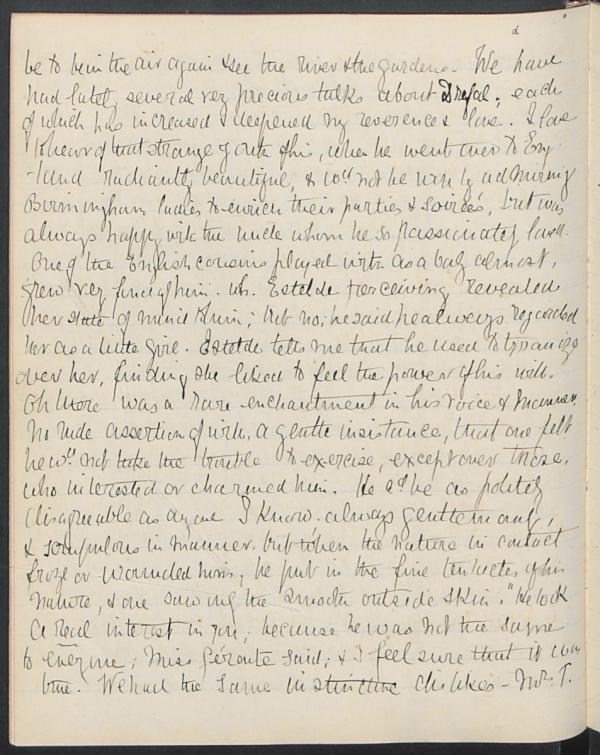 be to be in the air again & see the river & the gardens. We have
had lately several very precious talks about, each
of which has increased & deepened my reverence & love. I love
to hear of that strange youth of his, when he went over to Eng-
-land radiantly beautiful, & wod not be won by admiring
Birmingham ladies to enrich their parties & soirées, but was
always happy with the uncle whom he so passionately loved.
One of the English cousins played with as a baby almost,
grew very fond of him. wh. Estelde perceiving revealed
her state of mind to him; but no; he said he always regarded
her as a little girl. Estelde tells me that he used to tyrannize
over her, finding she liked to feel the power of his will.
Oh there was a rare enchantment in his voice & manner.
No rude assertion of will, a gentle insistance, that one felt
he wd not take the trouble to exercise, except over those,
who interested or charmed him. He cd be as politely
disagreeable as anyone I know. always gentlemanly,
& scrupulous in manner. but when the nature in contact
froze or wounded him, he put in the fine tentacles of his
nature, & one saw only the smooth outside skin. "He took
a real interest in you, because he was not the same
to everyone", Miss said; & I feel sure that it was
true. We had the same instinctive dislikes - Mr. T.